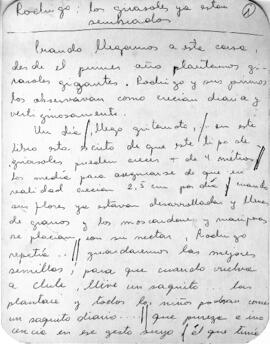 Rodrigo: los girasoles ya estan
sembrados
1
Cuando llegamos a esta casa,
desde el primer año plantamos gi-
rasoles gigantes. Rodrigo y sus primos
los observavan como crecian diaria y
vertiginosamente.
Un dia, llego gritando, // en este
libro sta. escrito de que este tipo de
girasoles pueden crecer + de 4 metros//
los media para asegurarse de que en
realidad crecian 2,5 cm por dia / cuando
sus flores ya estavan desarrolladas y llenas
de granos y los moscardones y mariposas
se placian con su nectar, Rodrigo
repetia.. // guardaremos las mejores
semillas, para que cuando vuelva
a Chile, lleve un saquito las
plantare y todos los niños podran comer
un saquito diario // que pureza e ino
cencia en ese gesto suyo / el que tiene